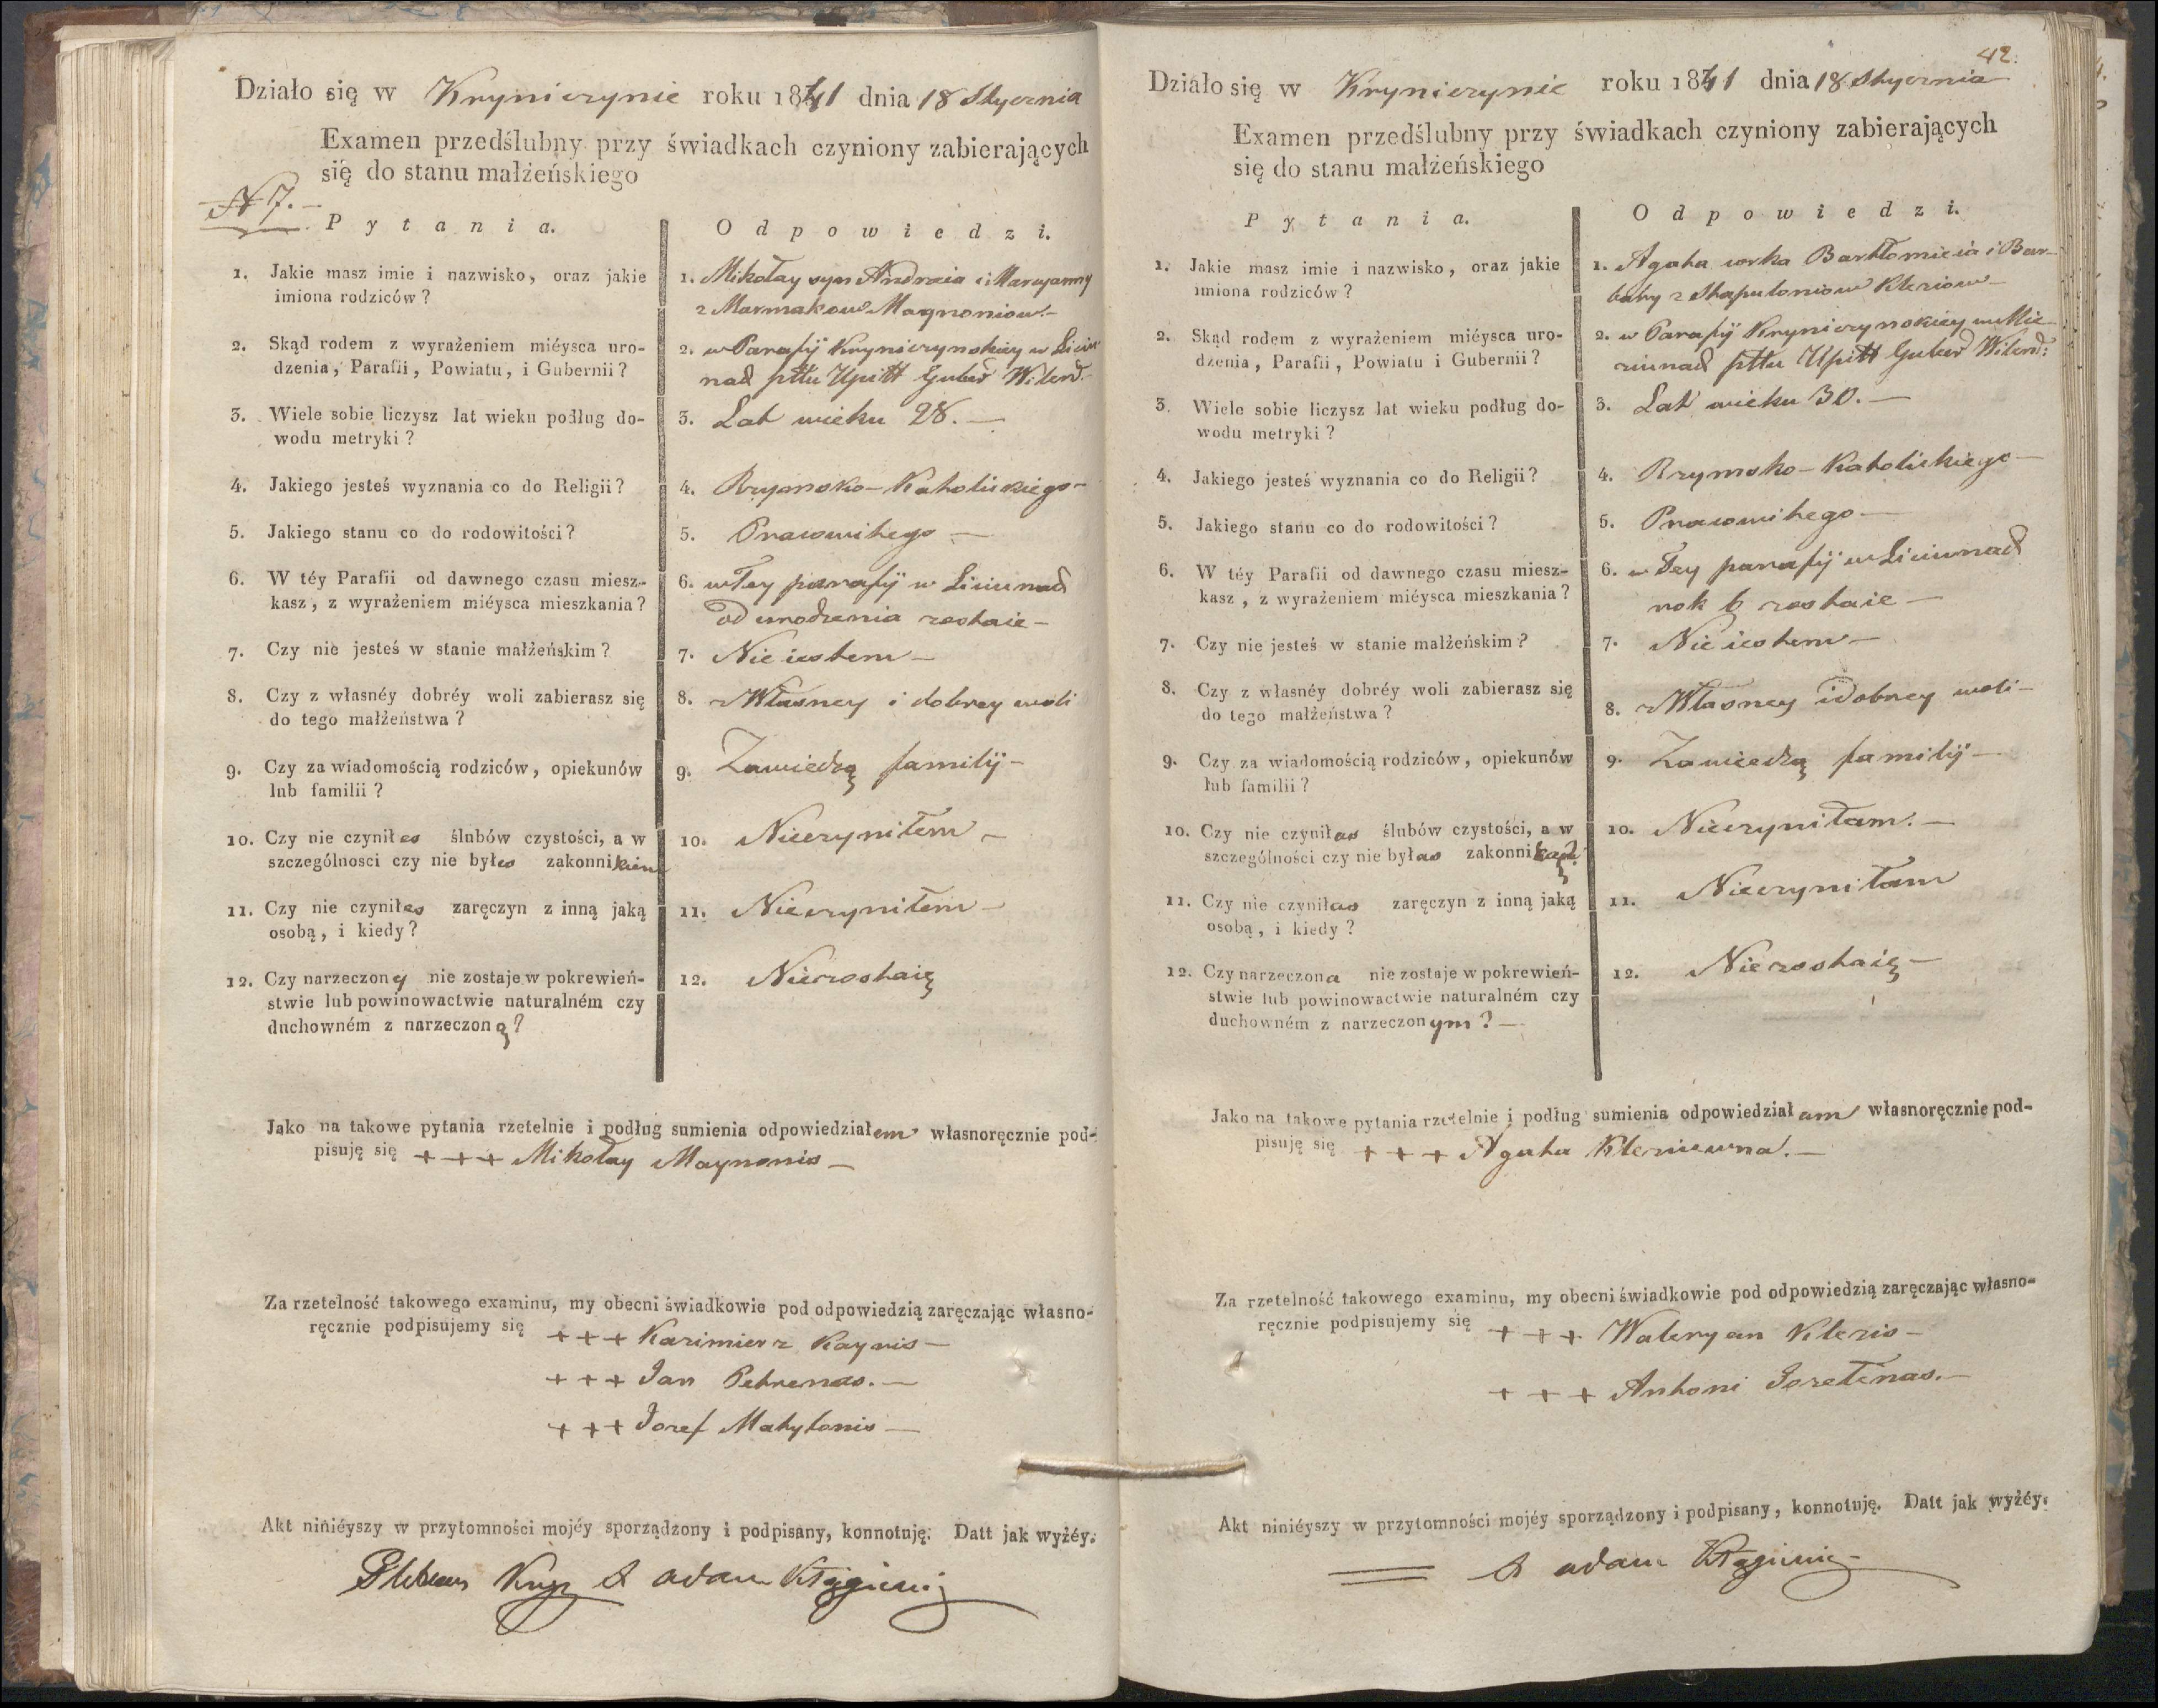 Działo się w Kryniczynie roku 1841 dnia 18 Stycznia
Examen przedślubny przy świadkach czyniony zabierających
się do stanu małżeńskiego
N 7.
Pytania.
Odpowiedzi.
1. Jakie masz imie i nazwisko, oraz jakie
imiona rodziców?
1. Mikołay syn Andrzeia i Maryanny
z Marmakow Magnoniow.—
2. Skąd rodem z wyrażeniem miéysca uro-
dzenia, Parafii, Powiatu, i Gubernii?
2. w Parafij Kryniczynskiey w Liciu
nad pttu Upitt Guber Wilend.
3. Wiele sobie liczysz lat wieku podług do-
wodu metryki?
3. Lat wieku 28.—
4. Jakiego jesteś wyznania co do Religii?
4. Rzymsko-Katolickiego—
5. Jakiego stanu co do rodowitości?
5. Prawowitego—
6. W téy Parafii od dawnego czasu miesz-
kasz, z wyrażeniem miéysca mieszkania?
6. w Tey parafij w Liciunad
od urodzenia zostaie—
7. Czy nie jesteś w stanie małżeńskim?
7. Nie iestem—
8. Czy z własnéy dobréy woli zabierasz się
do tego małżeństwa?
8. z Własney i dobrey woli
9. Czy za wiadomością rodziców, opiekunów
lub familii?
9. Zawiedzą familij—
10. Czy nie czyniłes ślubów czystości, a w
szczególnosci czy nie byłes zakonnikiem
10. Nieczyniłem—
11. Czy nie czyniłes zaręczyn z inną jaką
osobą, i kiedy?
11. Nieczyniłem—
12. Czy narzeczony nie zostaje w pokrewień-
stwie lub powinowactwie naturalném czy
duchowném z narzeczoną?
12. Niezostaię
Jako na takowe pytania rzetelnie i podług sumienia odpowiedziałem własnoręcznie pod-
pisuję się +++ Mikołay Maynonis—
Za rzetelność takowego examinu, my obecni świadkowie pod odpowiedzią zaręczając własno-
ręcznie podpisujemy się +++ Kazimierz Kaynis—
+++ Jan Petrenas.—
+++ Jozef Matylonis—
Akt niniéyszy w przytomności mojéy sporządzony i podpisany, konnotuję. Datt jak wyżéy.
Pleban Kryn X adam
42.
Działo się w Kryniczynie roku 1841 dnia 18 Stycznia
Examen przedślubny przy świadkach czyniony zabierających
się do stanu małżeńskiego
Pytania.
Odpowiedzi.
1. Jakie masz imie i nazwisko, oraz jakie
imiona rodziców?
1. Agata corka Bartłomieia i Bar-
bary z Shapuloniow Kleziow—
2. Skąd rodem z wyrażeniem miéysca uro-
dzenia, Parafii, Powiatu i Gubernii?
2. w Parafij Kryniczynskiey w Mie
ciunad pttu Upitt Guber Wilend:
3. Wiele sobie liczysz lat wieku podług do-
wodu metryki?
3. Lat wieku 30.—
4. Jakiego jesteś wyznania co do Religii?
4. Rzymsko-Katolickiego—
5. Jakiego stanu co do rodowitości?
5. Prawowitego—
6. W téy Parafii od dawnego czasu miesz-
kasz, z wyrażeniem miéysca mieszkania?
6. w Tey parafij w Liciunad
rok 6 zostaie—
7. Czy nie jesteś w stanie małżeńskim?
7. Nie iestem—
8. Czy z własnéy dobréy woli zabierasz się
do tego małżeństwa?
8. z Własney i dobrey woli—
9. Czy za wiadomością rodziców, opiekunów
lub familii?
9. Zawiedzą familij—
10. Czy nie czyniłas ślubów czystości, a w
szczególności czy nie byłas zakonnicą?
10. Nieczyniłam.—
11. Czy nie czyniłas zaręczyn z inną jaką
osobą, i kiedy?
11. Nieczyniłam
12. Czy narzeczona nie zostaje w pokrewień-
stwie lub powinowactwie naturalném czy
duchowném z narzeczonym?—
12. Niezostaię—
Jako na takowe pytania rzetelnie i podług sumienia odpowiedziałam własnoręcznie pod-
pisuję się +++ Agata Klezniewna.—
Za rzetelność takowego examinu, my obecni świadkowie pod odpowiedzią zaręczając własno-
ręcznie podpisujemy się +++ Waleryan Klezis—
+++ Antoni Jozełenas.—
Akt niniéyszy w przytomności mojéy sporządzony i podpisany, konnotuję. Datt jak wyżéy.
X adam